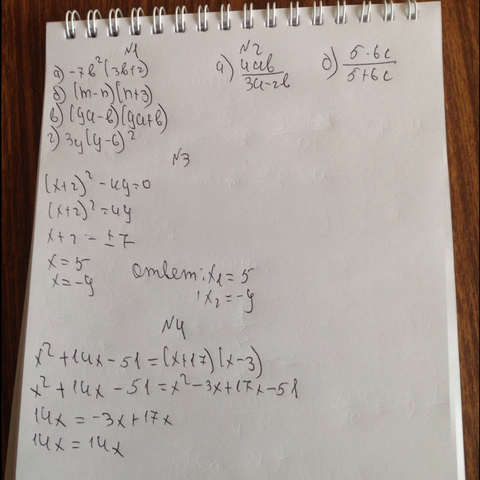 N1
а) -7b²(3b+2)
б) (m-n)(n+3)
в) (9a-b)(9a+b)
г) 3y(y-6)²
N2
а) 4ab / 3a-2b
б) 5-6c / 5+6c
N3
(x+2)² - 49=0
(x+2)² = 49
x+2 = ±7
x=5
x=-9
Ответ: x₁ = 5
x₂ = -9
N4
x² + 14x - 51 = (x+17)(x-3)
x² + 14x - 51 = x² - 3x + 17x - 51
14x = -3x + 17x
14x = 14x